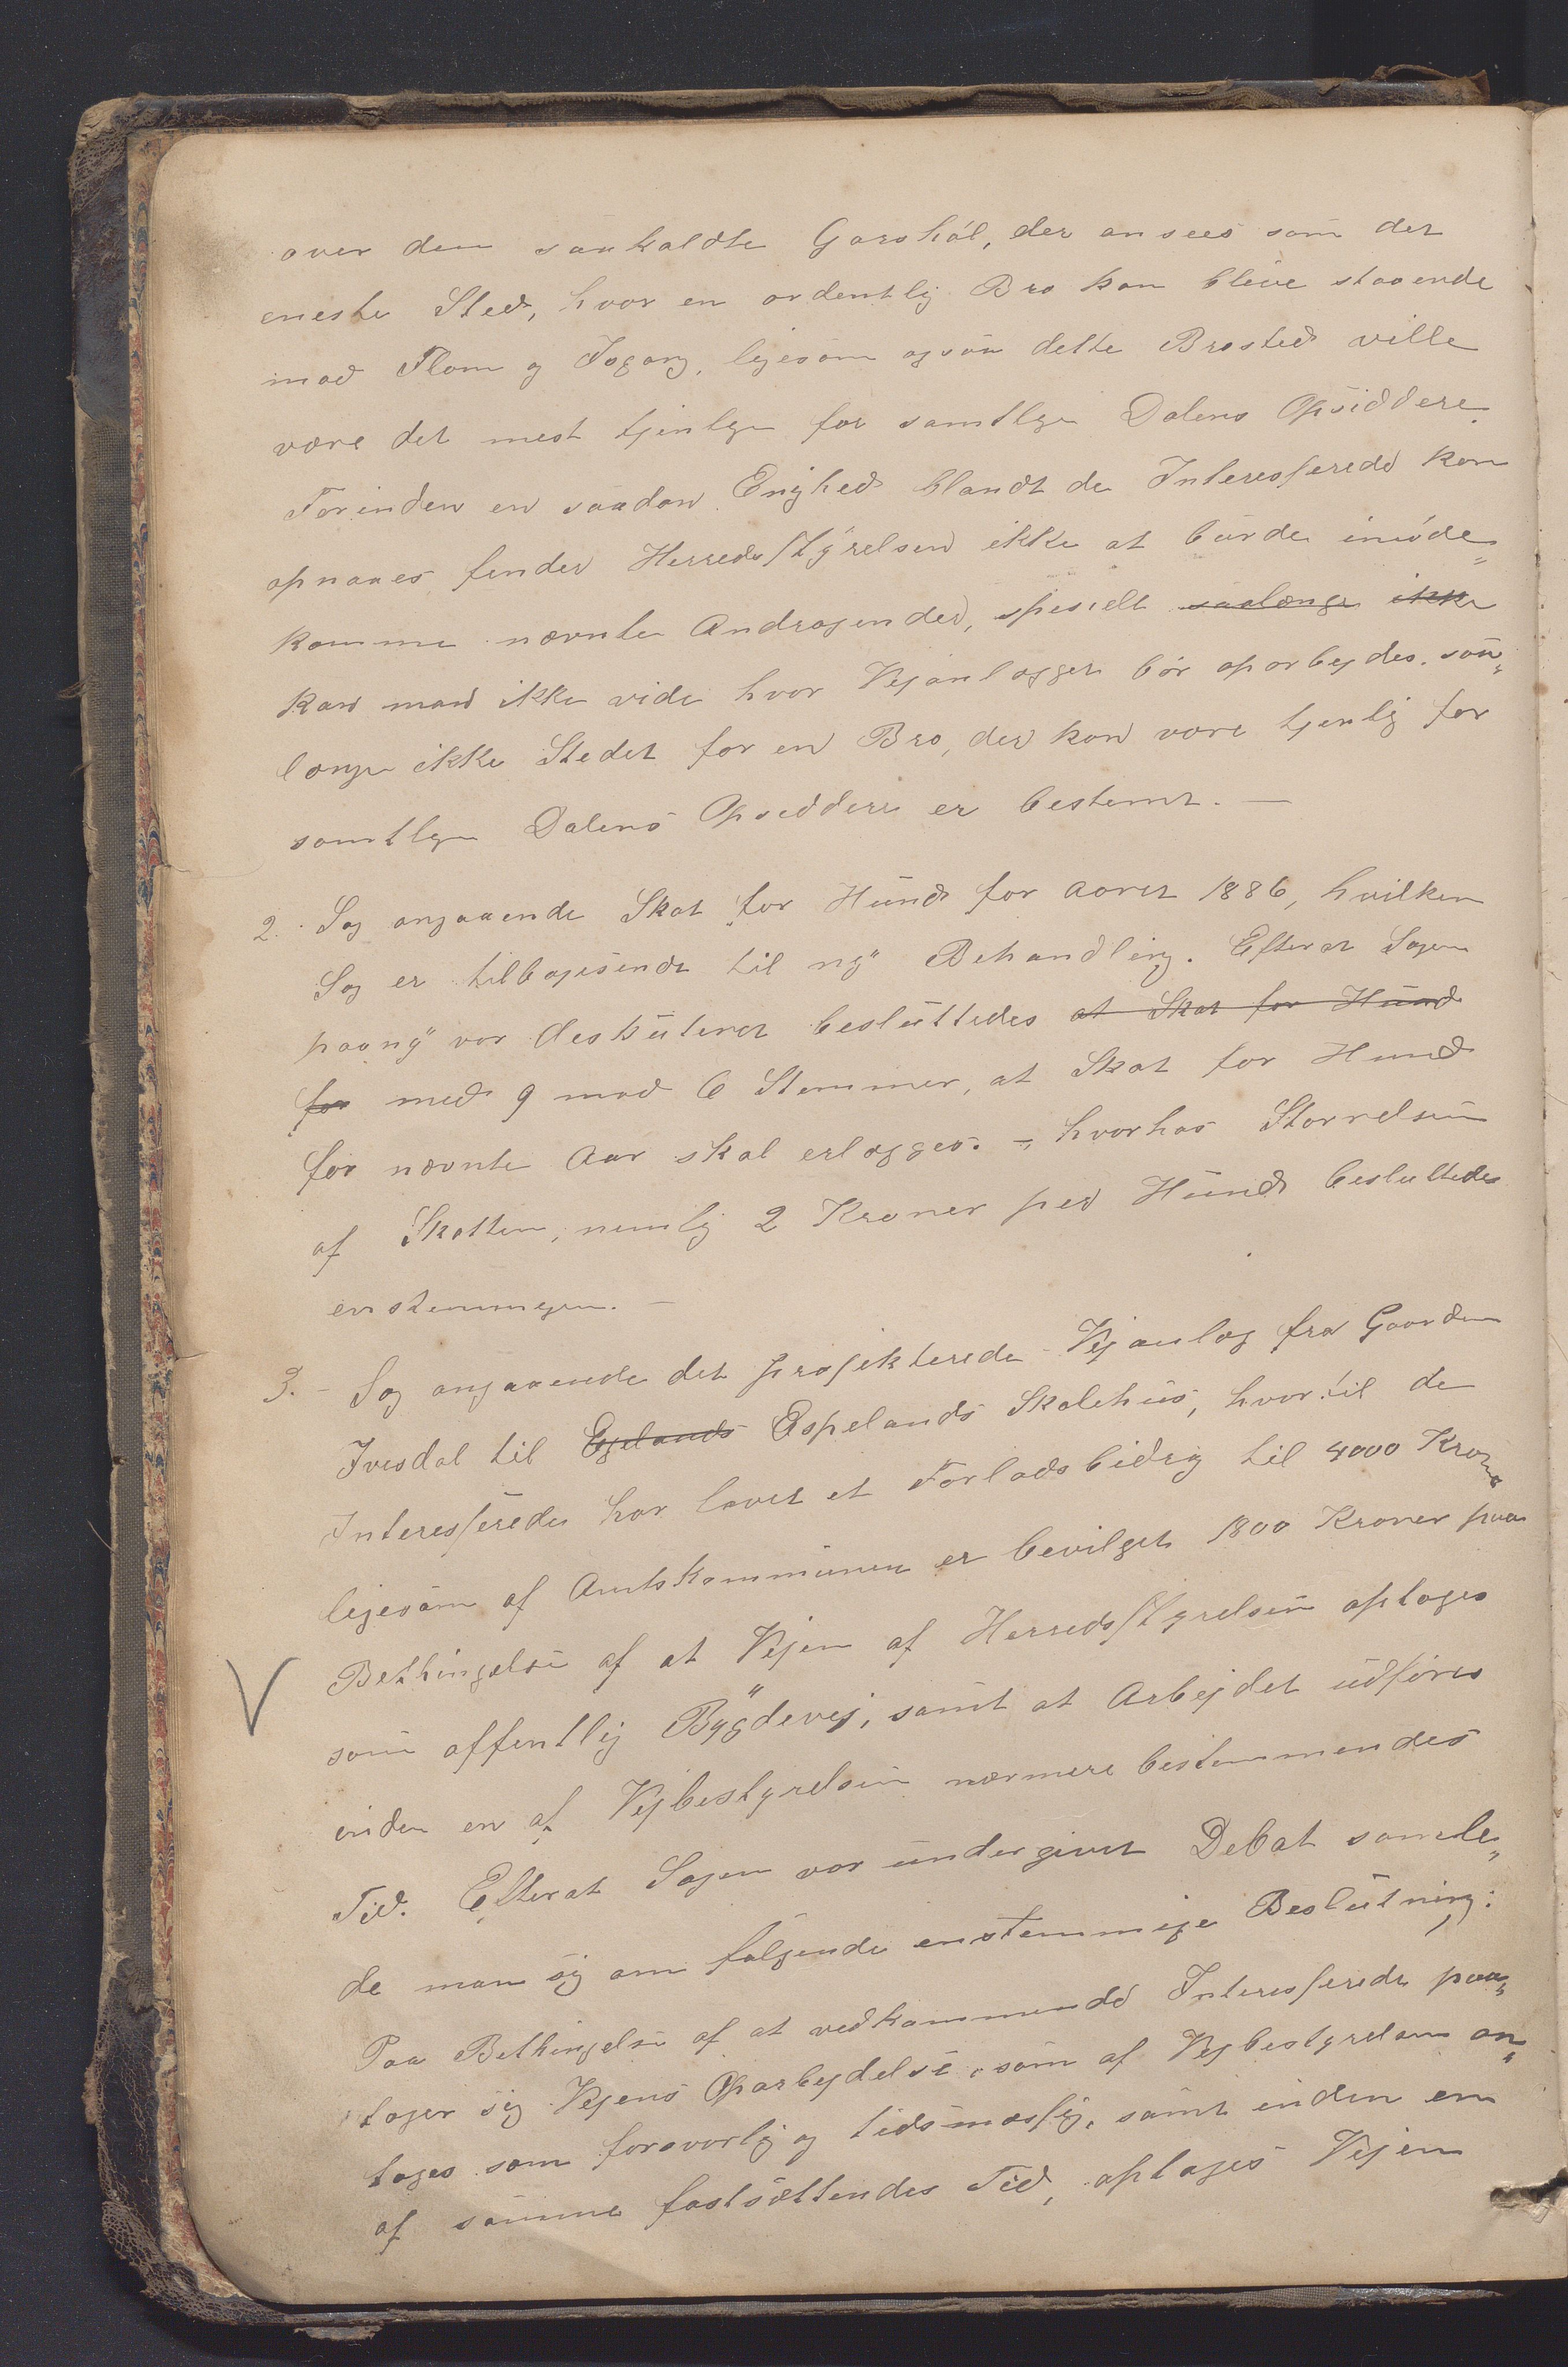 over den saakaldte Garshøl, der ansees som det
eneste Sted, hvor en ordentlig Bro kan blive staaende
mod Flom og Isgang, ligesom ogsaa dette Brosted ville
være det mest tjenlige for samtlige Dalens Opsiddere.
Forinden en saadan Enighed blandt de Interesserede kan
opnaaes finder Herredsstyrelsen ikke at burde imøde„
komme nævnte Andragender, spesielt saalænge ikke
kan man ikke vide hvor Vejanlægget bør oparbejdes, saa„
længe ikke Stedet for en Bro, der kan være tjenlig for
samtlige Dalens Opsiddere er bestemt. —
2. Sag angaaende Skat for Hund for Aaret 1886, hvilken
Sag er tilbagesendt til ny Behandling. Efterat Sagen
paany var diskuteret besluttedes at Skat for Hund
for med 9 mod 6 Stemmer, at Skat for Hund
for nævnte Aar skal erlægges. – hvorhos Størrelsen
af Skatten, nemlig 2 Kroner per Hund besluttedes
enstemmigen. –
3. – Sag angaaende det projekterede Vejanlæg fra Gaarden
Ivesdal til Egelands Espelands Skolehus, hvortil de
Interesserede har lovet et Forladsbidrag til 4000 Kroner
ligesom af Amtskommunen er bevilget 1800 Kroner paa
Bethingelse af at Vejen af Herredsstyrelsen optages
som offentlig Bygdevej, samt at Arbejdet udføres
inden en af Vejbestyrelsen nærmere bestemmendes
Tid. Efterat Sagen var undergivet Debat samle„
de man sig om følgende enstemmige Beslutning:
Paa Bethingelse af at vedkommende Interesserede paa„
tager sig Vejens Oparbejdelse, som af Vejbestyrelsen an„
tages som forsvarlig og tidsmæssig, samt inden en
af samme fastsættendes Tid, optages Vejen